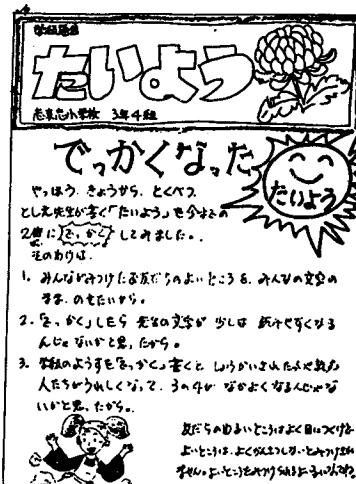 学級通信
たいよう
志真志小学校 3年4組
でっかくなった
たいよう
やっほう、きょうから、とくべつ
とし先生が書く「たいよう」を今までの
2倍に でっかく してみました。
そのわけは、
1. みんながみつけたお友だちのよいところを、みんなの文字の
まま、のせたいから。
2.「でっかく」したら 先生の文字が 少しは 読みやすくなる
んじゃないかと思ったから。
3. 学級のようすを「でっかく」書くと しょうかいされた
人たちがうれしくなって、3の4が なかよくなるんじゃな
いかと思ったから。
友だちの
よいところは、よく
ません。よいところをみつけられる